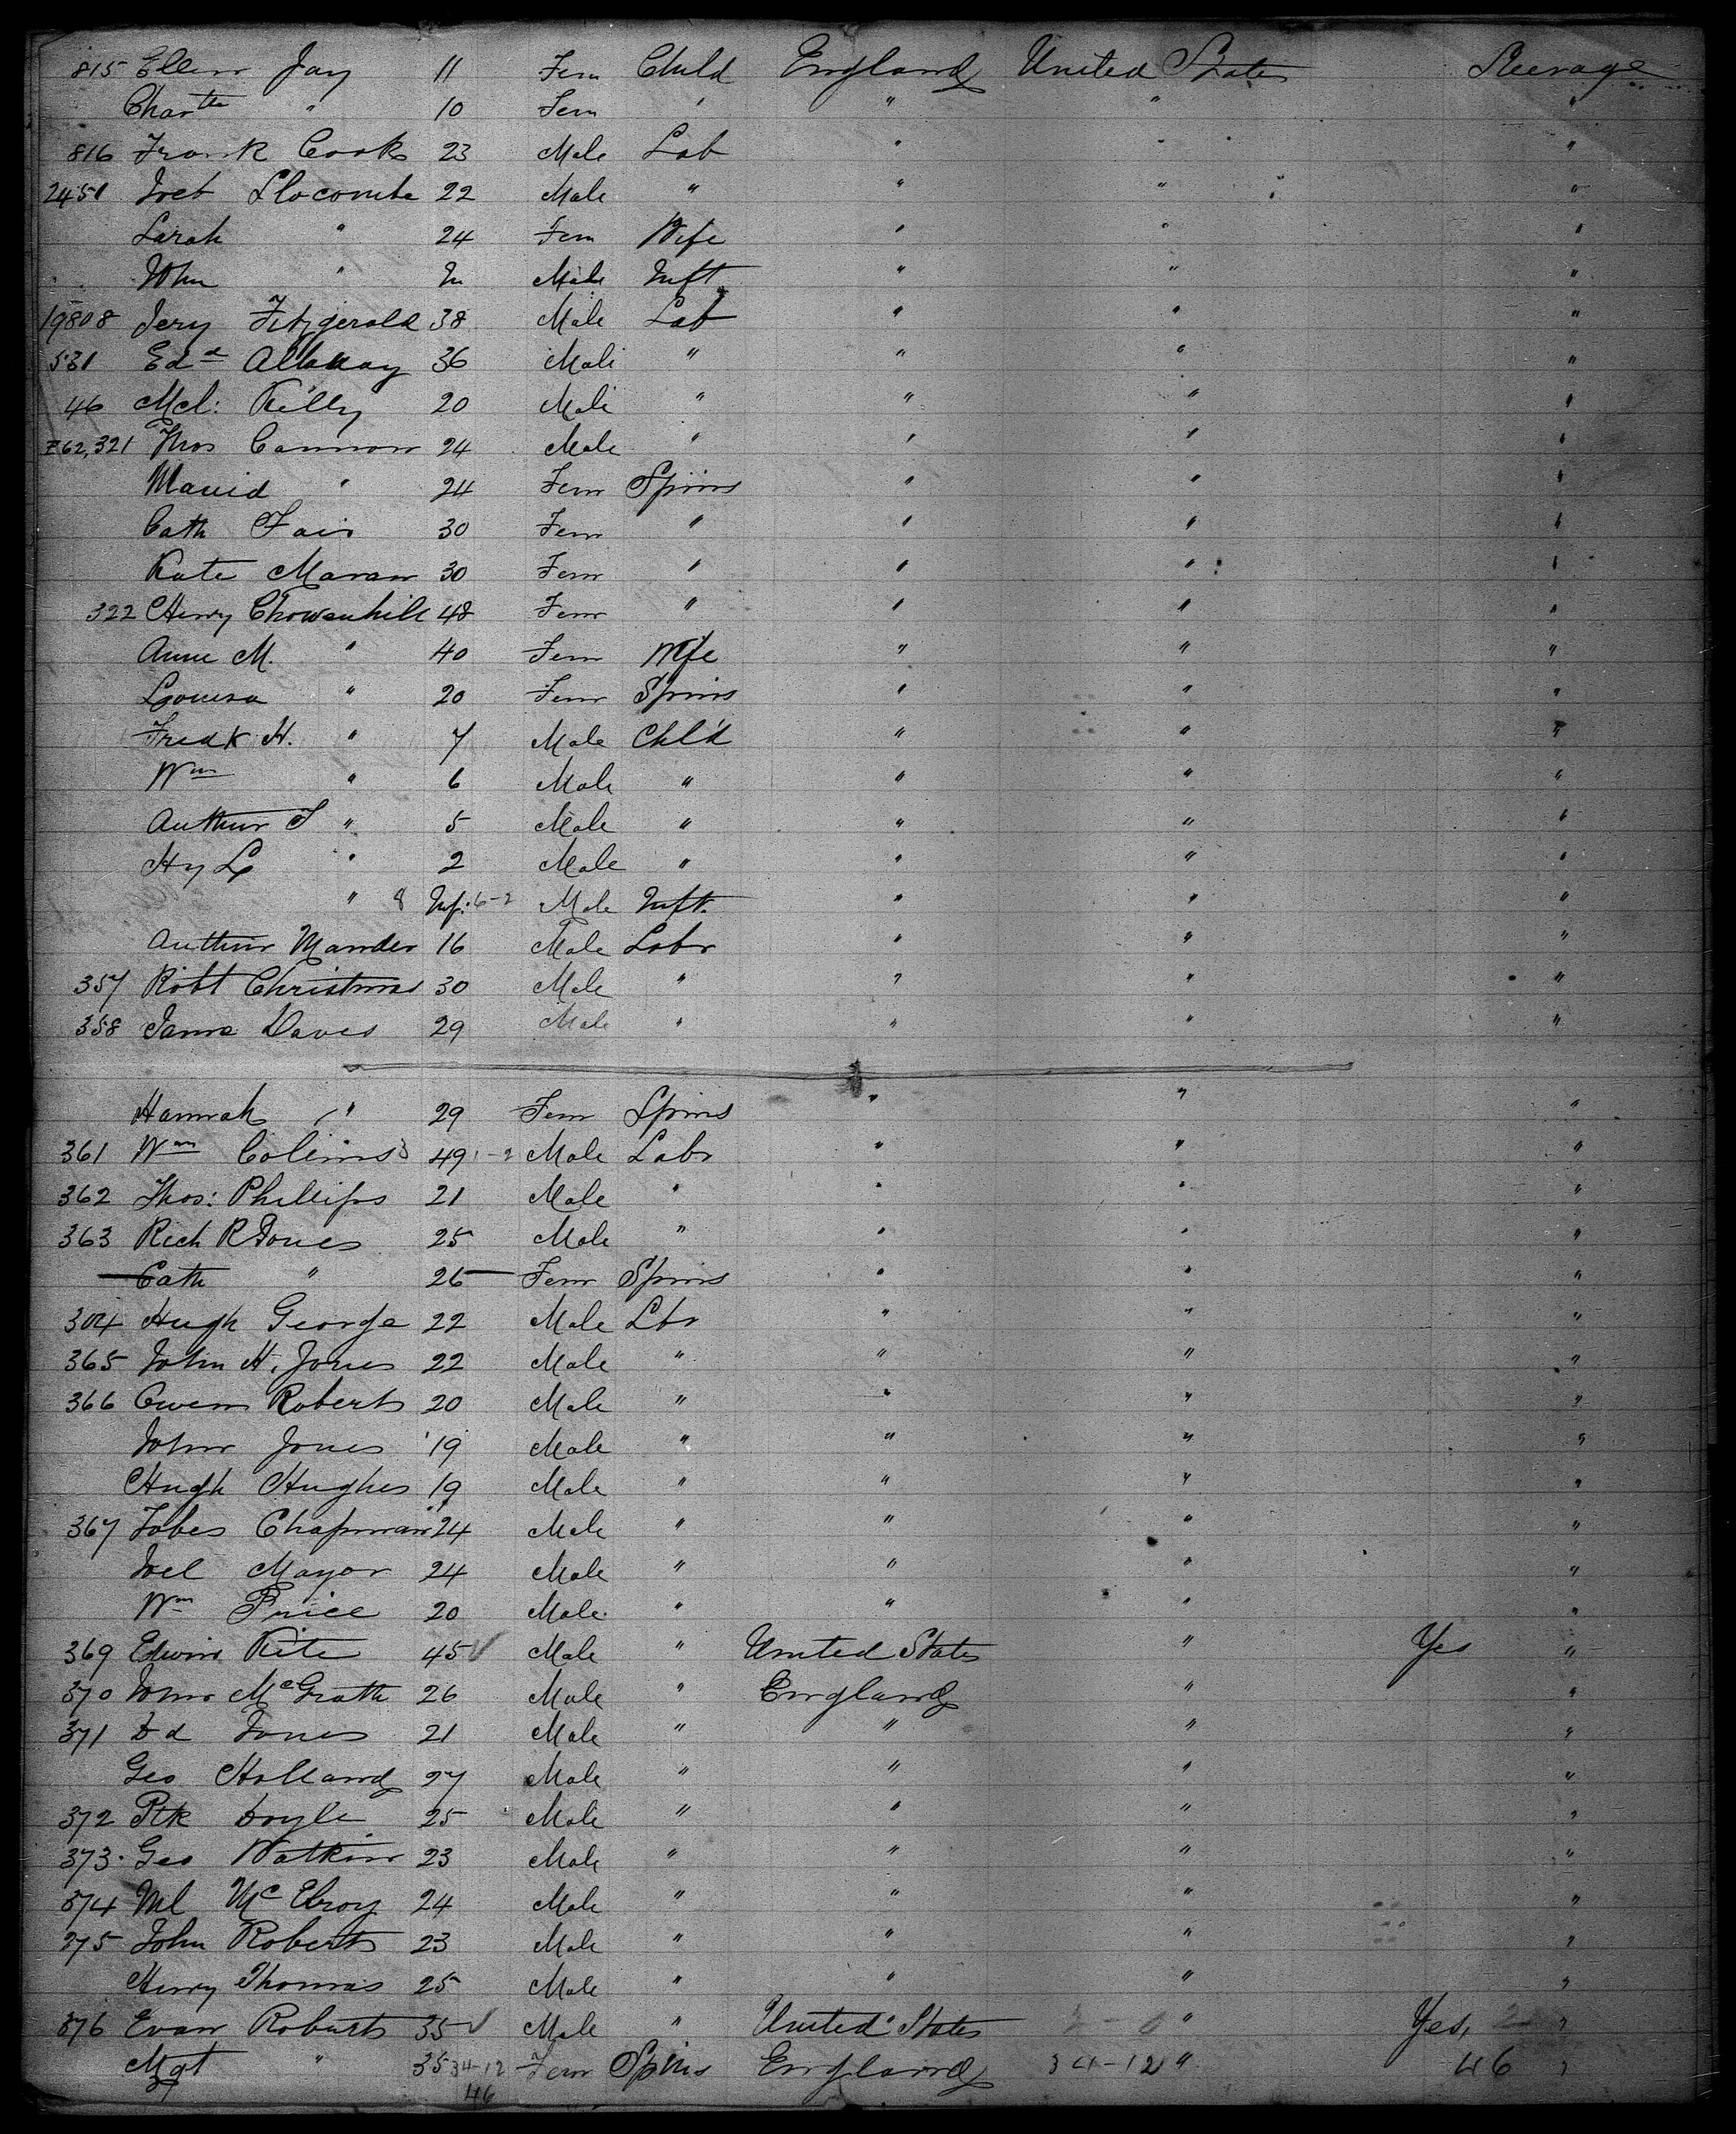 815 Ellen Jay 11 Fem Child England United States Steerage
Chartte " 10 Fem ' " " "
816 Frank Cook 23 Male Lab " " "
2451 Slocombe 22 Male " " " "
Sarah " 24 Fem Wife " " "
John " In Male Inft " " "
19808 Jery Fitzgerald 38 Male Lab " " "
531 Edd Allaway 36 Male " " " "
46 Mcl: Killy 20 Male " " " "
262,321 Thos Cannon 24 Male " " " "
" 24 Fem Spins " " "
Cath Fair 30 Fem " " " "
Kate Maran 30 Fem " " " "
322 Henry Chowenhill 48 Fem " " " "
Anne M. " 40 Fem Wife " " "
Louisa " 20 Fem Spins " " "
Fredk H. " 7 Male Chld " " "
Wm " 6 Male " " " "
Authur " 5 Male " " " "
Hy L " 2 Male " " " "
" 8 Inf: 6-2 Male Inft. " " "
Authur Mander 16 Male Labr " " "
357 Robt Christmas 30 Male " " " "
358 Jams Daves 29 Male " " " "
Hannah " 29 Fem Spins " " "
361 Wm Colims 49 1-2 Male Labr " " "
362 Thos: Phillips 21 Male " " " "
363 Rich R Jones 25 Male " " " "
Cath " 26 Fem Spins " " "
304 Hugh George 22 Male Lbr " " "
365 John H. Jones 22 Male " " " "
366 Owen Roberts 20 Male " " " "
John Jones 19 Male " " " "
Hugh Hughes 19 Male " " " "
367 Chapman 24 Male " " " "
Mayor 24 Male " " " "
Wm Price 20 Male " " " "
369 Edwin Kite 45 Male " United States " Yes "
370 John McGrath 26 Male " England " "
371 Dd Jones 21 Male " " " "
Geo Holland 27 Male " " " "
372 Ptk Doyle 25 Male " " " "
373 Geo Watkins 23 Male " " " "
374 Ml McElroy 24 Male " " " "
375 John Roberts 23 Male " " " "
Henry Thomas 25 Male " " " "
376 Evan Roberts 35 Male " United States " Yes, 2 "
Mgt " 35 34-12 Fem Spins England 34-12 " 46 "
46